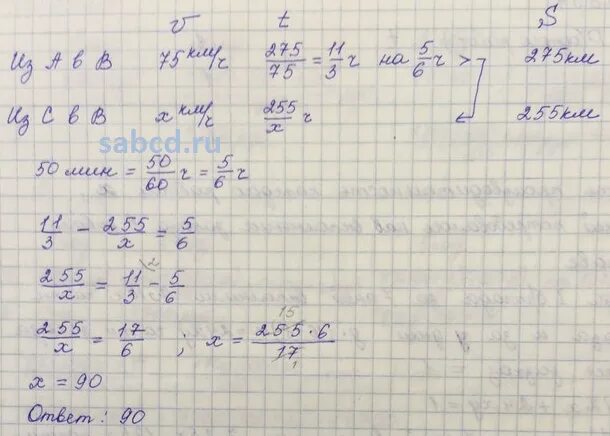 v t S
Из А в В 75 км/ч 275/75 = 11/3 ч на 5/6 ч > 275 км
Из С в В x км/ч 255/x ч 255 км
sabcd.ru
50 мин = 50/60 ч = 5/6 ч
11/3 - 255/x = 5/6
255/x = 11/3 \2 - 5/6
255/x = 17/6 ; x = 255 15 · 6 / 17 1
x = 90
Ответ: 90